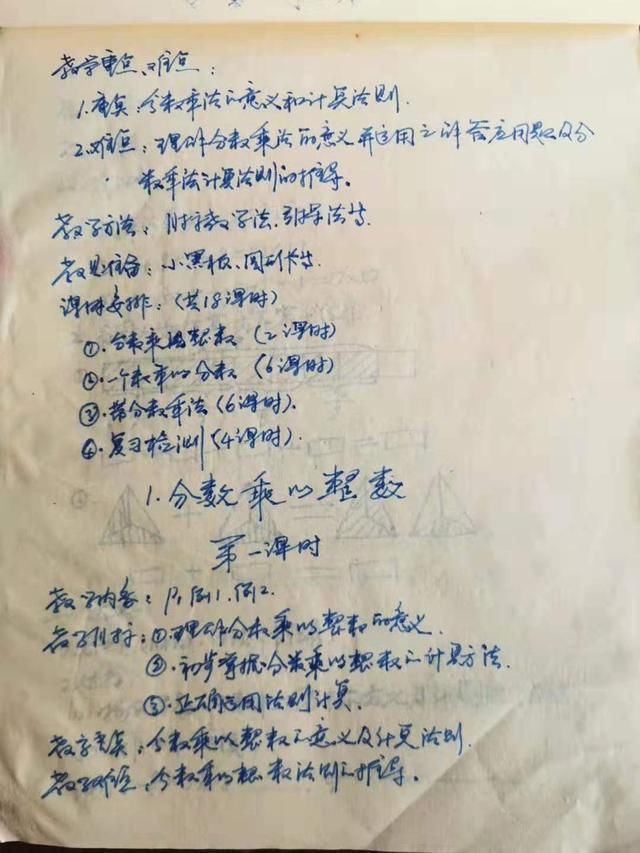 教学重点、难点：
1.重点：分数乘法的意义和计算法则.
2.难点：理解分数乘法的意义并运用之解答应用题及分
数乘法计算法则的推导。
教学方法：目标教学法、引导法等.
教具准备：小黑板、图形卡等.
课时安排：(共18课时)
①.分数乘以整数 (2课时)
②.一个数乘以分数 (6课时)
③.带分数乘法(6课时).
④.复习检测(4课时).
1.分数乘以整数
第一课时
教学内容：P1例1.例2.
教学目标：①.理解分数乘以整数的意义.
②.初步掌握分数乘以整数的计算方法.
③.正确运用法则计算.
教学重点：分数乘以整数的意义及计算法则.
教学难点：分数乘以整数法则的推导。